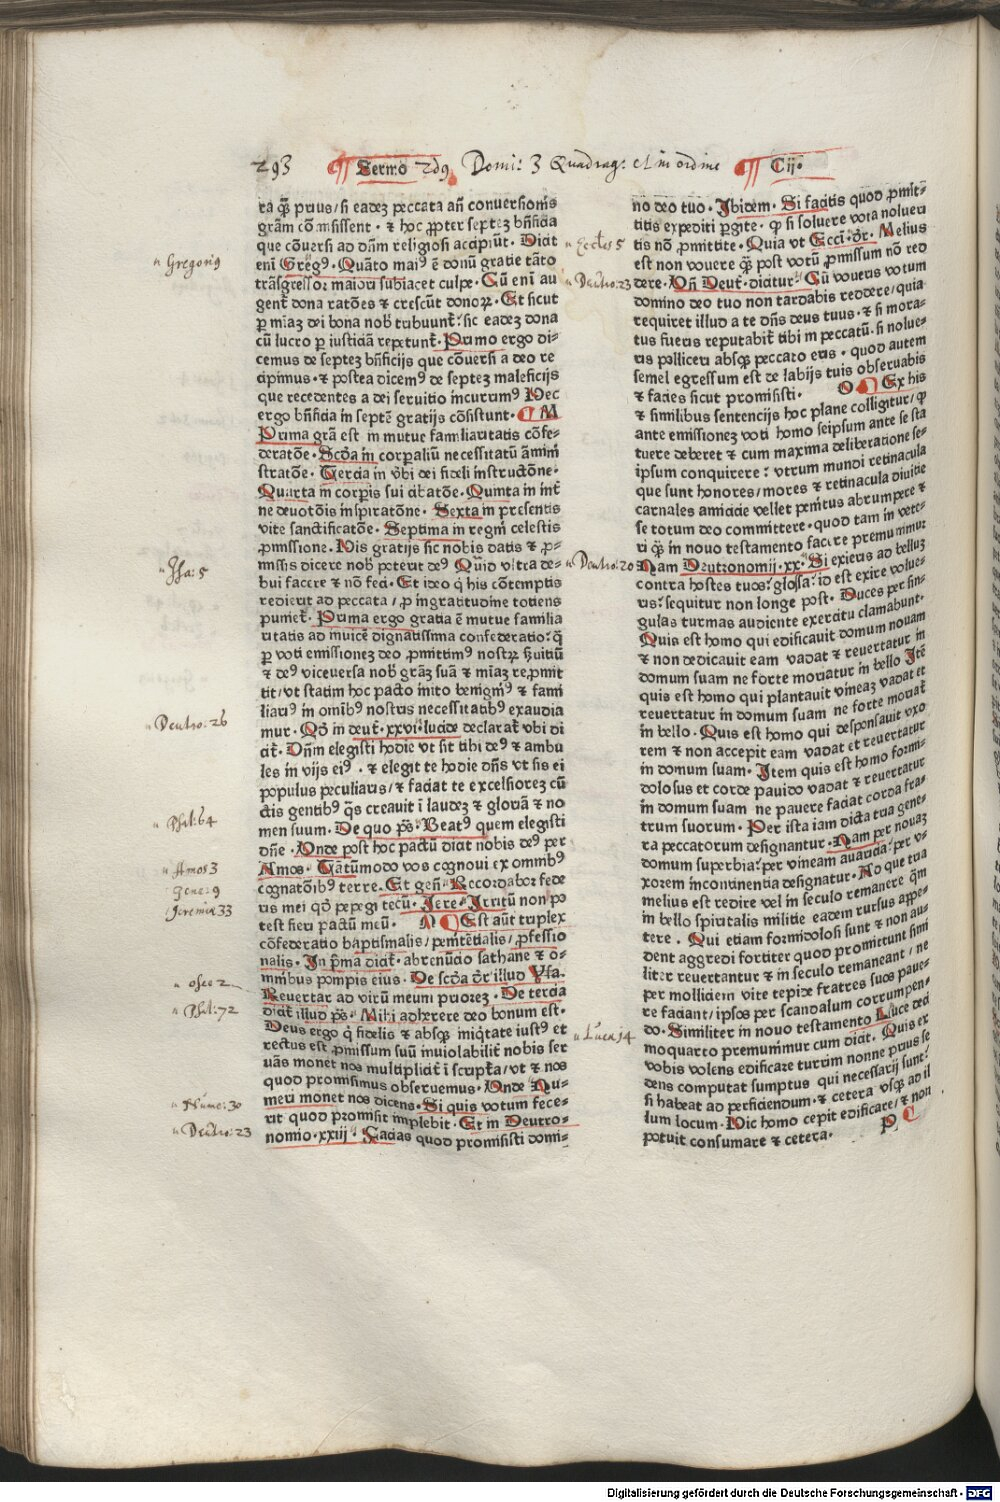 293 Sermo 2d9 Domi: 3 Quadrag: et in ordine Cij.
ra q̃ꝫ prius/si eadeꝫ peccata añ conuersionis
grãm cõmisissent. ⁊ hoc ꝓpter septeꝫ bñficia
que cõuersi ad dñm religiosi accipiũt. Dicit
eni Gregꝰ. Quãto maiꝰ ē donũ gratie tãto
trãsgressor maiori subiacet culpe. Cũ eni au
gent̃ dona ratões ⁊ crescũt donoꝝ. Et sicut
ꝑ mĩaꝫ dei bona nob̃ tribuunt̃. sic eadeꝫ dona
cũ lucro ꝑ iusticiã repetunt̃. Primo ergo di⸗
cemus de septeꝫ bñficijs que cõuersi a deo re
cipimus. ⁊ postea dicemꝰ de septeꝫ maleficijs
que recedentes a dei seruitio incurrimꝰ Hec
ergo bñficia in septē gratijs cõsistunt. M
Prima grã est in mutue familiaritatis cõfe⸗
deratõe. Scd̃a in corpaliũ necessitatũ āmini
stratõe. Tercia in v̾bi dei fideli instructõne.
Quarta in corpis sui cibatõe. Quinta in int̾
ne deuotõis inspiratõne. Sexta in presentis
vite sanctificatõe. Septima in regni celestis
ꝓmissione. His gratijs sic nobis datis ⁊ ꝓ⸗
missis dicere nob̾ poterit deꝰ Quid vltra de⸗
bui facere ⁊ nõ feci. Et ideo q̇ his cõtemptis
redierit ad peccata/ꝓ ingratitudine totiens
puniet̃. Prima ergo gratia ē mutue familia
ritatis ad inuicē dignatissima confederatio. q̃
ꝑ voti emissioneꝫ deo ꝓmittimꝰ nostꝝ ẜuitiũ
⁊ deꝰ viceuersa nob̾ grãꝫ suã ⁊ mĩaꝫ repromit
tit/vt statim hoc pacto inito benignꝰ ⁊ fami
liariꝰ in omĩbꝰ nostris necessitatibꝰ exaudia
mur. Qd̾ in deut̃. xxvi. lucide declarat̃ vbi di
cit̃. Dñm elegisti hodie vt sit tibi deꝰ ⁊ ambu
les in vijs eiꝰ. ⁊ elegit te hodie dñs vt sis ei
populus peculiaris/⁊ faciat te excelsioreꝫ cũ
ctis gentibꝰ q̃s creauit ĩ laudeꝫ ⁊ gloriã ⁊ no
men suum. De quo pš. Beatꝰ quem elegisti
dñe. Unde post hoc pactũ dicit nobis deꝰ per
Amos. Tãtũmodo vos cognoui ex omnibꝰ
cognatõibꝰ terre. Et geñ. Recordabor fede
ris mei qd̾ pepegi tecũ. Jere. Irritũ non po
test fieri pactũ meũ. N Est aũt triplex
cõfederatio baptismalis/penitētialis/ꝓfessio
nalis. In p̃ma dicit̃. abrenũcio sathane ⁊ o⸗
mnibus pompis eius. De scd̃a dr̃ illud Ysa.
Reuertar ad virũ meum prioreꝫ. De tercia
dicit̃ illud pš. Mihi adherere deo bonum est.
Deus ergo q̇ fidelis ⁊ absqꝫ iniq̇tate iustꝰ et
rectus est ꝓmissum suũ inuiolabilit̾ nobis ser
uãs monet nos multiplicit̾ ĩ scripta/vt ⁊ nos
quod promisimus obseruemus. Unde Nu⸗
meri monet nos dicens. Si quis votum fece⸗
rit quod promisit implebit. Et in Deutro⸗
nomio. xxiij. Facias quod promisisti domi⸗
no deo tuo. Ibidem. Si facitis quod ꝓmit⸗
titis expediti ꝑgite. qꝫ si soluere vota nolueri
tis nõ ꝓmittite. Quia vt Ecci̾. dr̃. Melius
est non vouere q̃ꝫ post votũ ꝓmissum nõ red
dere. Vñ Deut̃. dicitur. Cũ voueris votum
domino deo tuo non tardabis reddere/quia
requiret illud a te dñs deus tuus. ⁊ si mora⸗
tus fueris reputabit̃ tibi in peccatũ. si nolue⸗
ris polliceri absqꝫ peccato eris. quod autem
semel egressum est de labijs tuis obseruabis
⁊ facies sicut promisisti. O Ex his
⁊ similibus sentencijs hoc plane colligitur/qꝫ
ante emissioneꝫ voti homo seipsum ante se sta
tuere deberet ⁊ cum maxima deliberatione se⸗
ipsum conquirere: vtrum mundi retinacula
que sunt honores/mores ⁊ retinacula diuitie
carnales amicicie vellet penitus abrumpere ⁊
se totum deo committere. quod tam in vete⸗
ri q̃ꝫ in nouo testamento facere premunimur
Nam Deutronomij. xx. Si exieris ad belluꝫ
contra hostes tuos. glossa. id est exire volue⸗
ris. sequitur non longe post. Duces per sin⸗
gulas turmas audiente exercitu clamabunt.
Quis est homo qui edificauit domum nouam
⁊ non dedicauit eam vadat ⁊ reuertatur in
domum suam ne forte moriatur in bello Itē
quis est homo qui plantauit vineaꝫ vadat et
reuertatur in domum suam ne forte moriat̃
in bello. Quis est homo qui desponsauit vxo
rem ⁊ non accepit eam vadat et reuertatur
in domum suam. Item quis est homo formi⸗
dolosus et corde pauido vadat ⁊ reuertatur
in domum suam ne pauere faciat corda fra⸗
trum suorum. Per ista iam dicta tria gene⸗
ra peccatorum designantur. Nam per nouaꝫ
domum superbia. per vineam auaricia. per v⸗
xorem incontinentia designatur. Ac que tria
melius est redire vel in seculo remanere q̃m
in bello spiritalis militie eadem rursus appe⸗
tere. Qui etiam formidolosi sunt ⁊ non au⸗
dent aggredi fortiter quod promictunt simi
liter reuertantur ⁊ in seculo remaneant/ne
per molliciem vite tepide fratres suos paue⸗
re faciant/ipsos per scandalum corrumpen⸗
do. Similiter in nouo testamento Luce deci
moquarto premunimur cum dicit. Quis ex
vobis volens edificare turrim nonne prius se
dens computat sumptus qui necessarij sunt.
si habeat ad perficiendum. ⁊ cetera vsqꝫ ad il
lum locum. Hic homo cepit edificare/⁊ non
potuit consumare ⁊ cetera. P
Gregoriꝰ
Jsa: 5
Deutro: 26
Psal: 64
Amos 3
Gene: 9
Jeremia 33
osee 2
Psal: 72
Nume: 30
Deutro: 23
Eccles 5
Deutro: 23
Deutro: 20
Lucæ 14
Digitalisierung gefördert durch die Deutsche Forschungsgemeinschaft - DFG